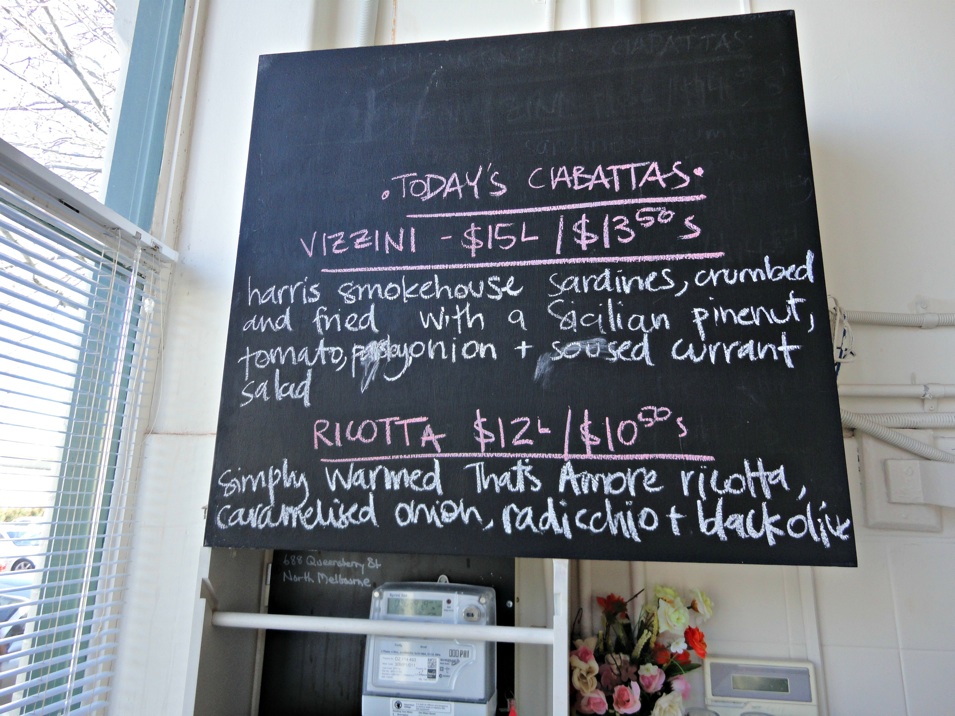 .TODAY'S CIABATTAS.
VIZZINI - $15L / $13 50 S
harris smokehouse sardines, crumbed
and fried with a Sicilian pinenut,
tomato, onion + soused currant
salad
RICOTTA $12L / $10 50 S
Simply warmed That's Amore ricotta,
caramelised onion, radicchio + black olive
688 Queensberry St
North Melbourne